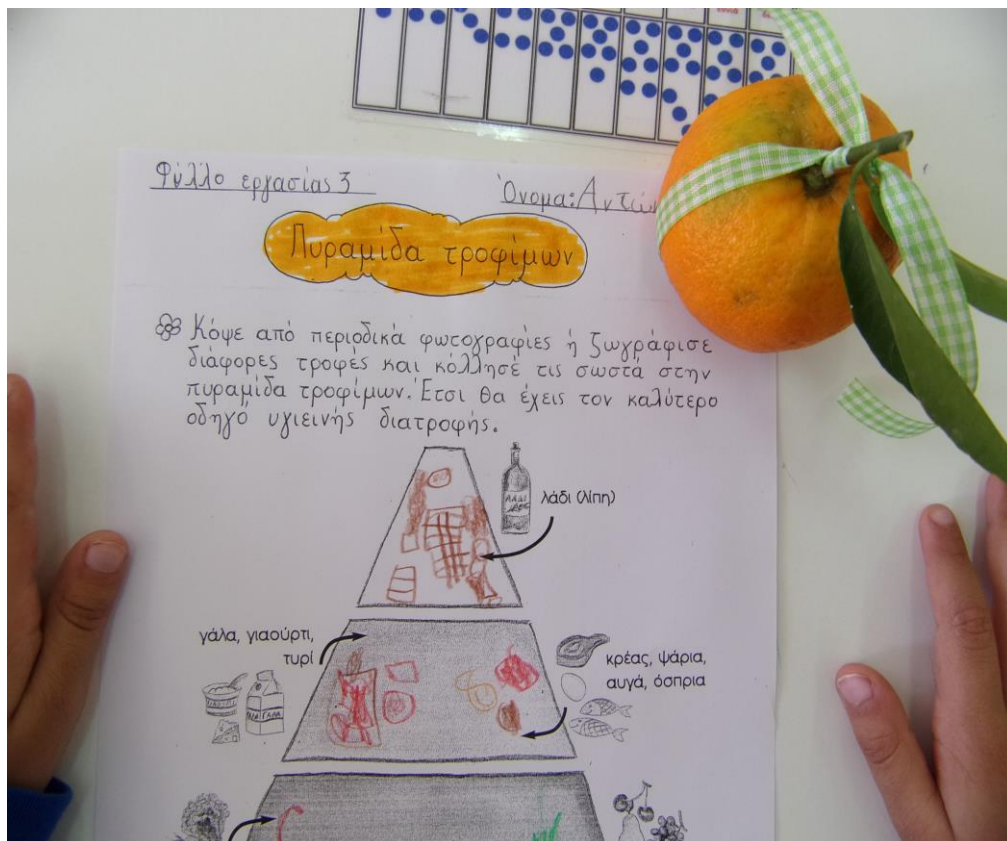 Φύλλο εργασίας 3
Όνομα: Αντών
Πυραμίδα τροφίμων
Κόψε από περιοδικά φωτογραφίες ή ζωγράφισε
διάφορες τροφές και κόλλησέ τις σωστά στην
πυραμίδα τροφίμων. Έτσι θα έχεις τον καλύτερο
οδηγό υγιεινής διατροφής.
ΛΑΔΙ
λάδι (λίπη)
γάλα, γιαούρτι,
τυρί
κρέας, ψάρια,
αυγά, όσπρια
ΓΑΛΑ